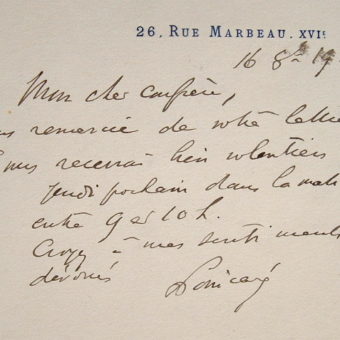 26, RUE MARBEAU. XVIe
16 8bre 19
Mon cher confrère,
us remercie de votre lettre
vous recevrai bien volontiers
jeudi prochain dans la mati
entre 9 et 10 h.
Croyez à mes sentiments
dévoués
Poincaré